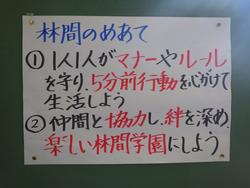 林間のめあて
① 1人1人がマナーやルール
を守り、5分前行動を心がけて
生活しよう
② 仲間と協力し、絆を深め、
楽しい林間学園にしよう